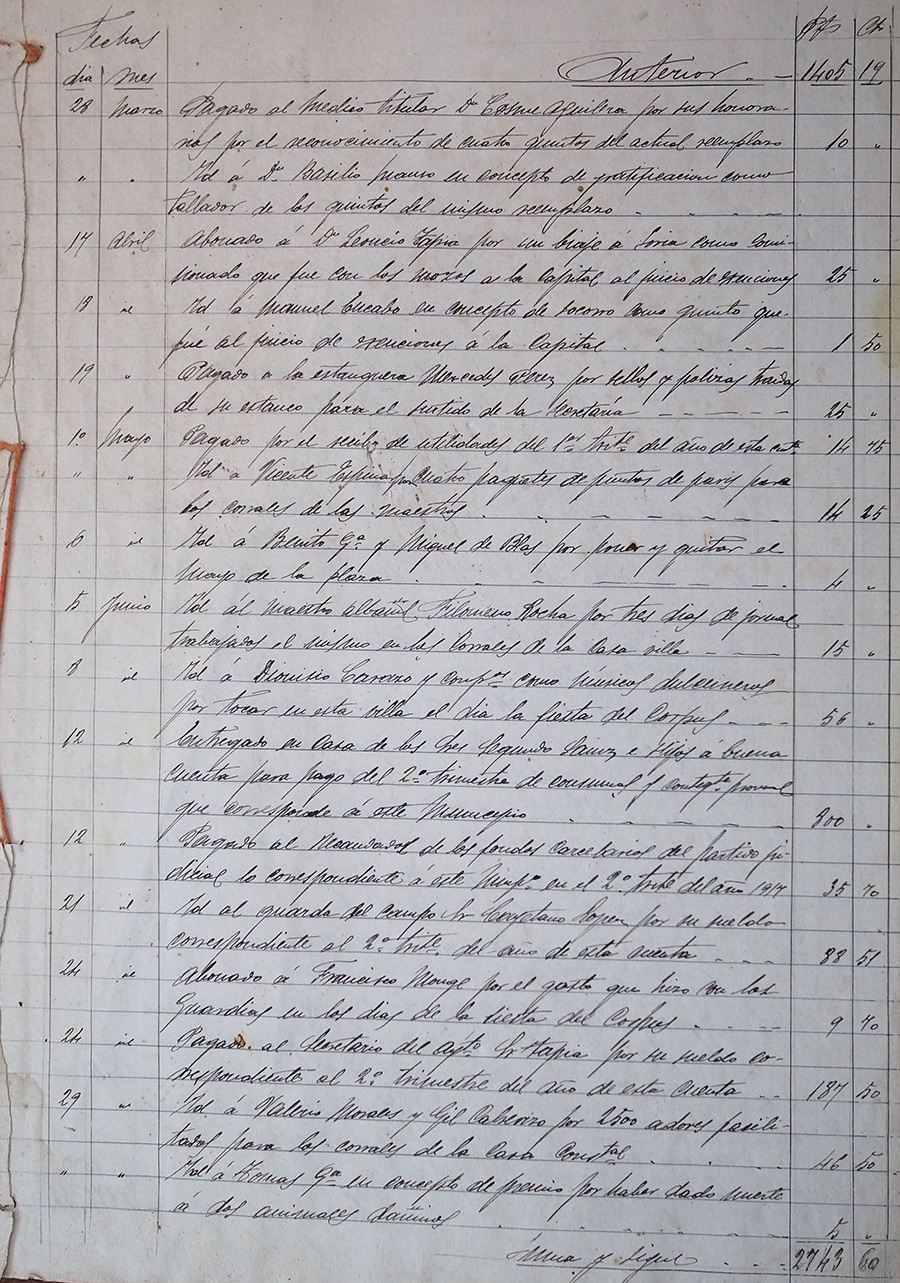 Fechas Pts Ct
dia mes Anterior 1405 19
28 Marzo Pagado al medico titular Dn Cosme Aguilera por sus honora-
rios por el reconocimiento de cuatro quintos del actual reemplazo 10 "
" " Id a Dn Basilio Manso en concepto de gratificacion como
tallador de los quintos del mismo reemplazo
17 Abril Abonado á Dn Leoncio Tapia por un biaje á Soria como Comi-
sionado que fue con los mozos a la Capital al juicio de exenciones 25 "
18 id Id á Manuel Encabo en concepto de socorro como quinto que
fué al juicio de exenciones á la Capital 1 50
19 " Pagado a la estanquera Mercedes Perez por sellos y polizas traidas
de su estanco para el surtido de la secretaria 25 "
1º Mayo Pagado por el recibo de utilidades del 1er trite. del año de esta cuta. 14 75
" " Id a Vicente Espina por cuatro paquetes de puntas de paris para
los corrales de los maestros 14 25
6 id Id á Benito Gª y Miguel de Blas por poner y quitar el
mayo de la plaza 4 "
5 Junio Id ál maestro albañil Filomeno Rocha por tres dias de jornal
trabajados el mismo en los Corrales de la Casa villa 15 "
8 id Id á Dionisio Carazo y compas como músicos
por tocar en esta villa el dia la fiesta del Corpus 56 "
12 id Entregado en casa de los Sres Segundo Sainz e Hijos á buena
cuenta para pago del 2º trimestre de consumos y contigte. provincial
que corresponde á este Municipio 800 "
12 " Pagado al recaudador de los fondos carcelarios del partido ju-
dicial lo correspondiente á este Munpo. en el 2º trite del año 1917 35 70
21 id Id al guarda del campo Sr Cayetano Lopez por su sueldo
correspondiente al 2º trite. del año de esta cuenta 88 51
24 id Abonado á Francisco Monge por el gasto que hizo con los
Guardias en los dias de la fiesta del Corpus 9 70
24 id Pagado al Secretario del Ayto Sr Tapia por su sueldo co-
rrespondiente al 2º trimestre del año de esta cuenta 187 50
29 " Id. á Valerio Morales y Gil Cabrerizo por 2500 adoves facili-
tados para los corrales de la Casa Constal 46 50
" " Id á Tomas Gª en concepto de premio por haber dado muerte
á dos animales dañinos 5 "
Suma y sigue 2743 60